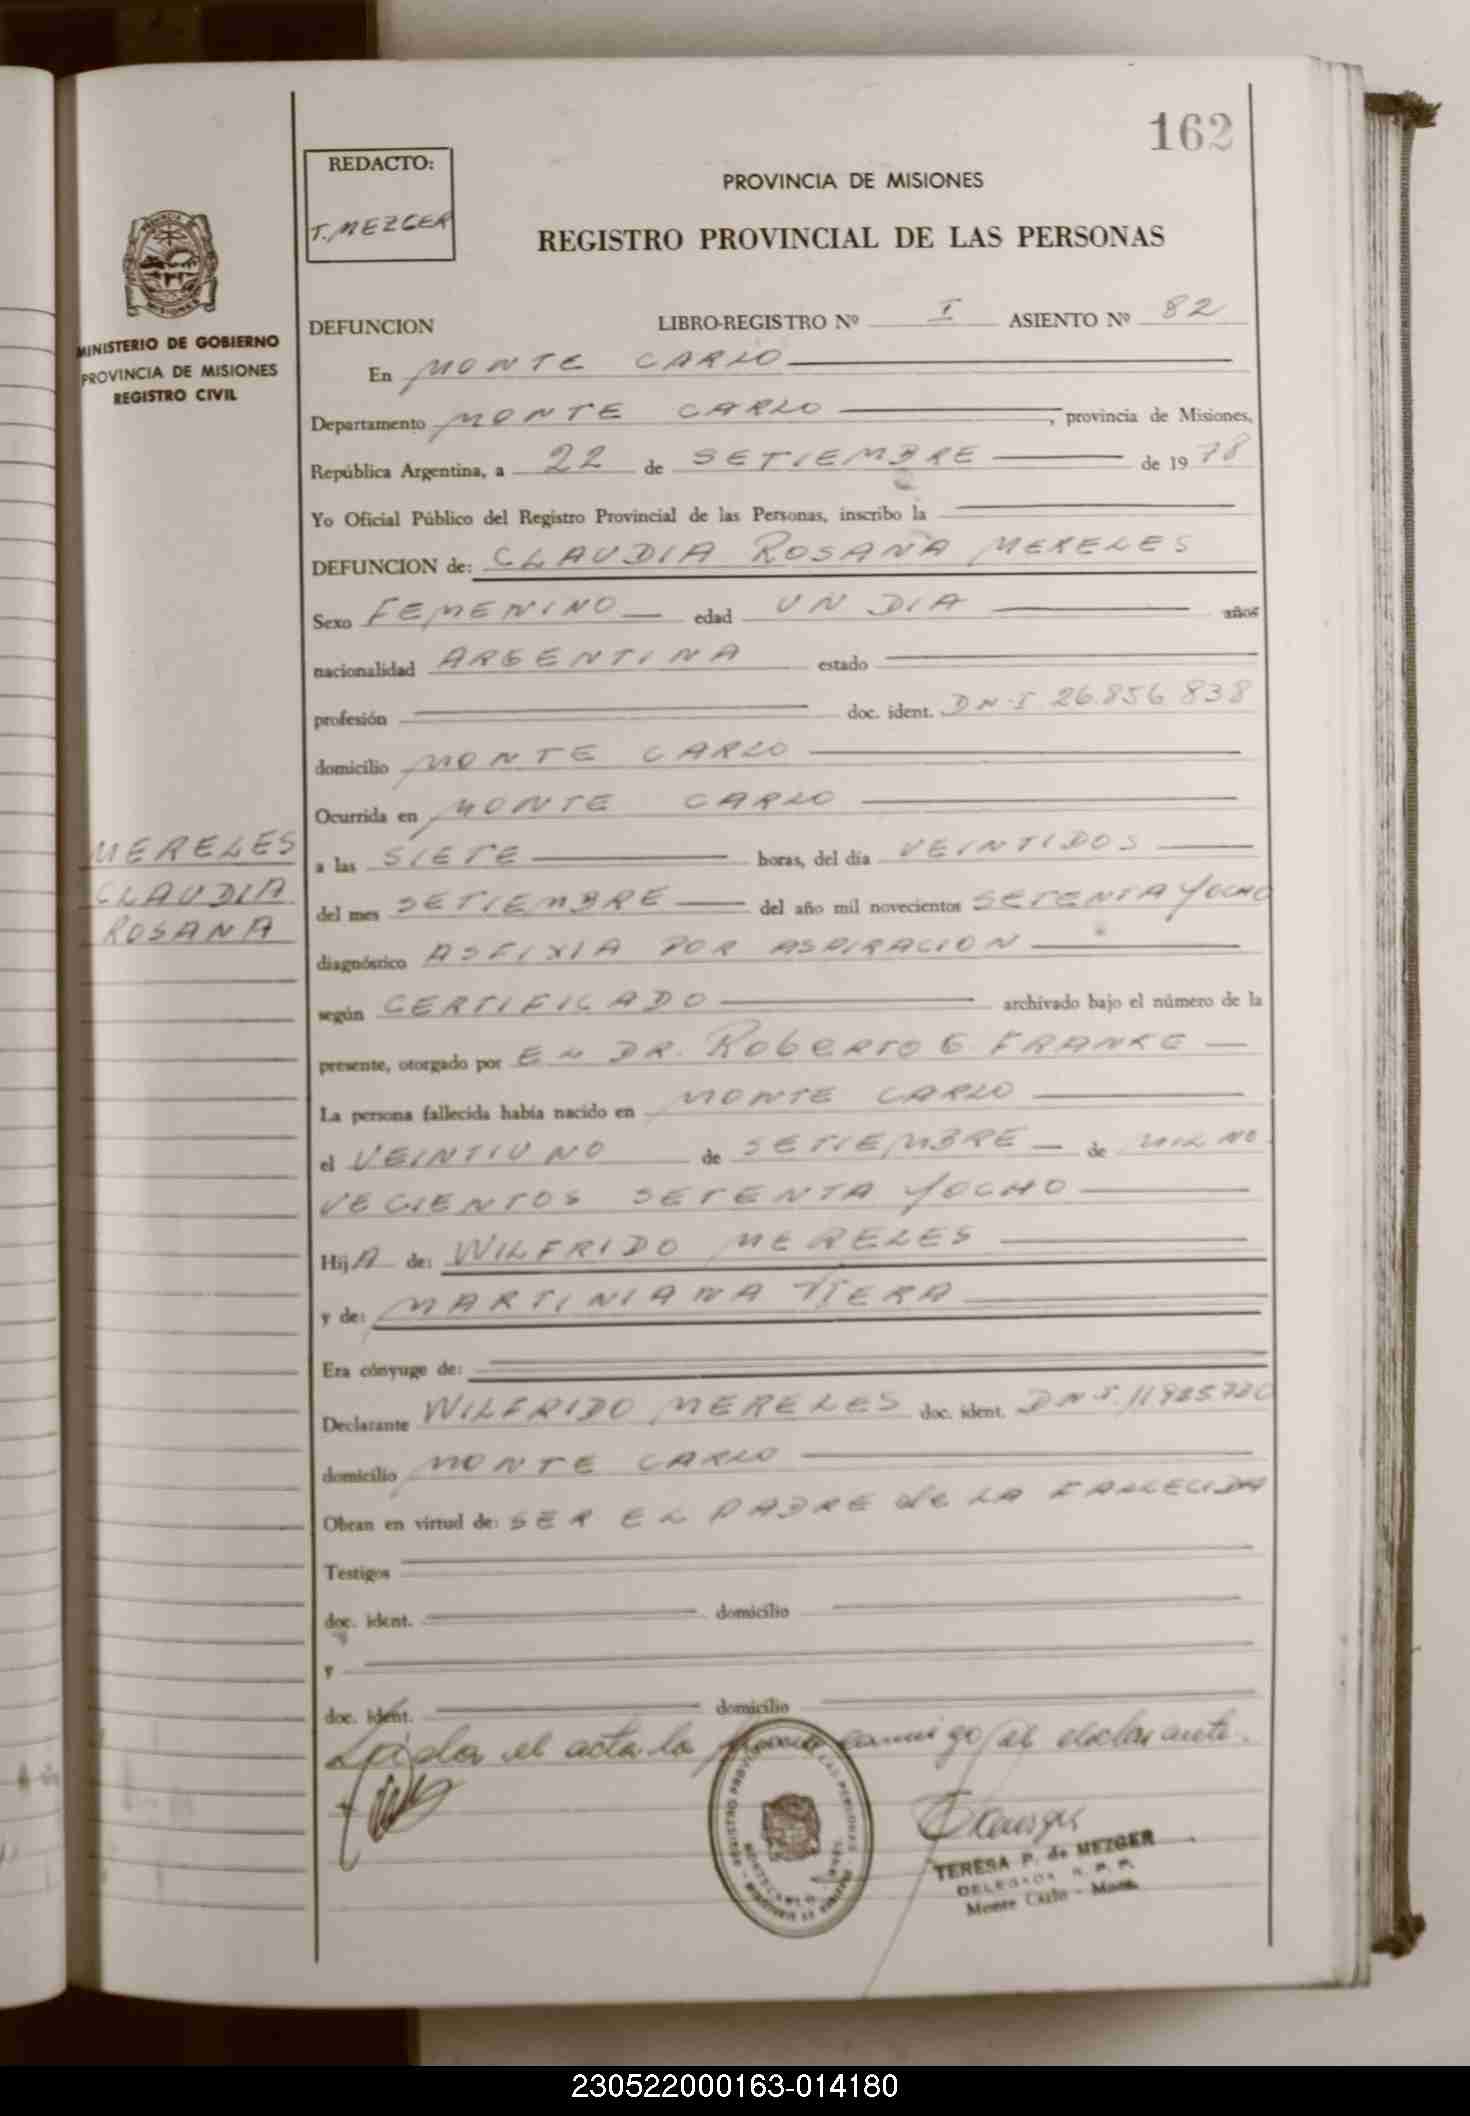 162
REDACTO:
T. MEZGER
PROVINCIA DE MISIONES
REGISTRO PROVINCIAL DE LAS PERSONAS
MINISTERIO DE GOBIERNO
PROVINCIA DE MISIONES
REGISTRO CIVIL
DEFUNCION LIBRO-REGISTRO Nº I ASIENTO Nº 82
En MONTE CARLO
Departamento MONTE CARLO, provincia de Misiones,
República Argentina, a 22 de SETIEMBRE de 1978
Yo Oficial Público del Registro Provincial de las Personas, inscribo la
DEFUNCION de: CLAUDIA ROSANA MERELES
Sexo FEMENINO edad UN DIA años
nacionalidad ARGENTINA estado
profesión doc. ident. DN.I 26.856 838
domicilio MONTE CARLO
Ocurrida en MONTE CARLO
MERELES
CLAUDIA
ROSANA
a las SIETE horas, del día VEINTIDOS
del mes SETIEMBRE del año mil novecientos SETENTA YOCHO
diagnóstico ASFIXIA POR ASPIRACION
según CERTIFICADO archivado bajo el número de la
presente, otorgado por EL DR. ROBERTO G. FRANKE
La persona fallecida había nacido en MONTE CARLO
el VEINTIUNO de SETIEMBRE de MIL NO
VECIENTOS SETENTA YOCHO
HijA de: WILFRIDO MERELES
y de: MARTINIANA VIERA
Era cónyuge de:
Declarante WILFRIDO MERELES doc. ident. DN.I.
domicilio MONTE CARLO
Obran en virtud de: SER EL PADRE de LA FALLECIDA
Testigos
doc. ident. domicilio
y
doc. ident. domicilio
Leida el acta la firma conmigo el declarante.
TERESA P. de MEZGER
DELEGADA R. P. P.
Monte Carlo - Mnes.
230522000163-014180